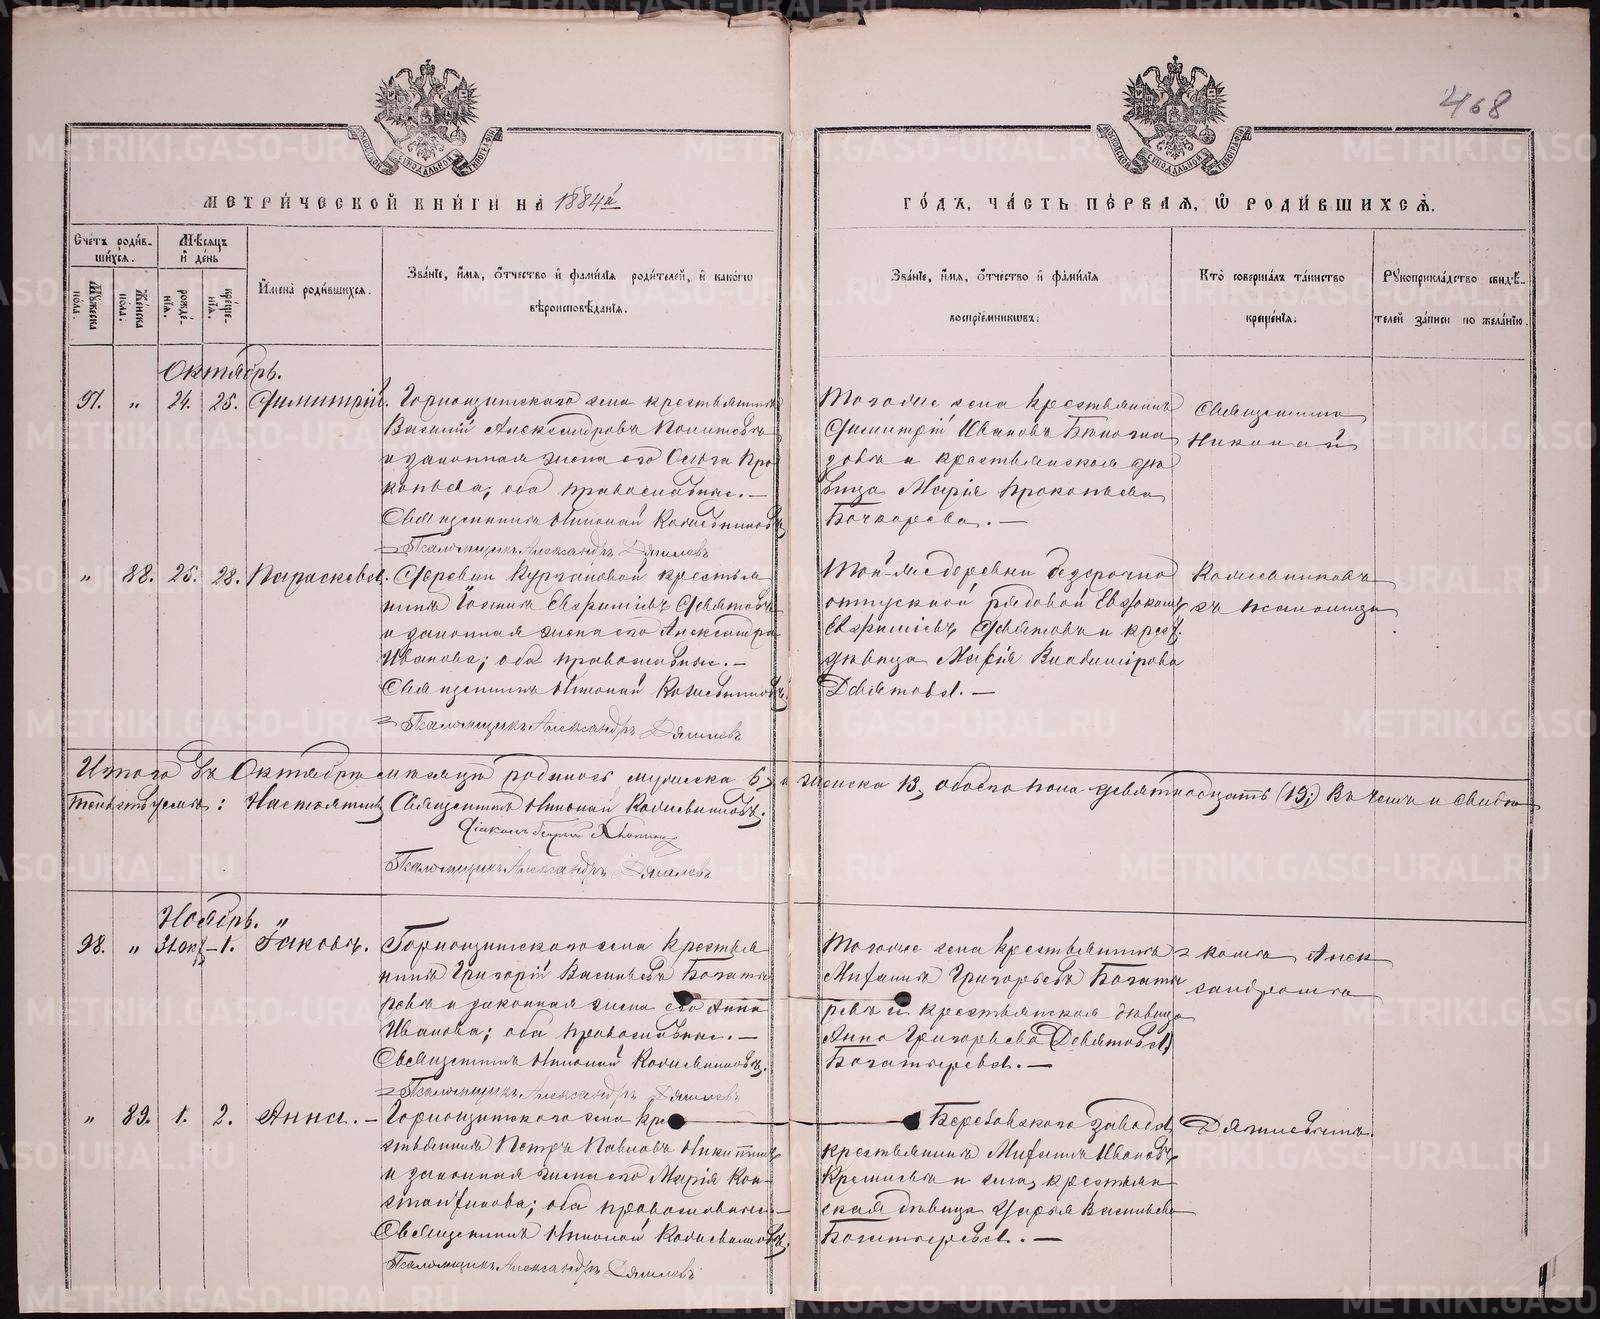 468
МЕТРИЧЕСКОЙ КНИГИ НА 1884й
ГОДЪ, ЧАСТЬ ПЕРВАЯ, Ѡ РОДИВШИХСЯ.
Счетъ родив-
шихся.
Мѣсяцъ
и день
Мужеска пола.
Женска пола.
рожде-
нія.
креще-
нія.
Имена родившихся.
Званіе, имя, отчество и фамилія родителей, и какогѡ
вѣроисповѣданія.
Званіе, имя, отчество и фамилія
воспріемниковъ.
Кто совершалъ таинство
крещенія.
Рукоприкладство свидѣ-
телей записи по желанію.
Октябрь.
97. " 24. 25. Димитрій.
Горнощитскаго села крестьянинъ
Василій Александровъ
и законная жена его Про
копьева; оба православные.—
Священникъ Николай
Псаломщикъ Александръ
Тогоже села крестьянинъ
Димитрій Ивановъ
и крестьянская дѣ
вица Марія Прокопьева
Бочкарева.—
Священникъ
Николай
" 88. 25. 28. Параскева.
Деревни Кургановой крестья
нинъ Евфиміевъ Девятовъ
и законная жена его Александра
Иванова; оба православные.—
Священникъ Николай
Псаломщикъ Александръ
Тойже деревни безсрочно
отпускной рядовой
Евфиміевъ Девятовъ и крест.
дѣвица Марія Владимірова
Девятова.—
Итого въ Октябрѣ мѣсяцѣ родилось мужеска 6, и женска 13, обоего пола девятнадцать (19;) Въ чемъ и свидѣ
тельствуемъ: Настоятель Священникъ Николай
Діаконъ Георгій
Псаломщикъ Александръ
Ноябрь.
98. " 31 окт. — 1. Іаковъ.
Горнощитскаго села крестья
нинъ Григорій Васильевъ Богаты
ревъ и законная жена его Анна
Иванова; оба православные.—
Священникъ Николай
Псаломщикъ Александръ
Тогоже села крестьянинъ
Михаилъ Григорьевъ Богаты
ревъ и крестьянская дѣвица
Анна Григорьева
Богатырева.—
съ псаломщи
комъ Алек
сандромъ
" 89. 1. 2. Анна.—
Горнощитскаго села кре
стьянинъ Петръ Павловъ Никитинъ
и законная жена его Марія Кон-
стантинова; оба православные—
Священникъ Николай
Псаломщикъ Александръ
Березовскаго завода
крестьянинъ Михаилъ Ивановъ
и села, крестьян
ская дѣвица Дарья Васильева
Богатырева.—